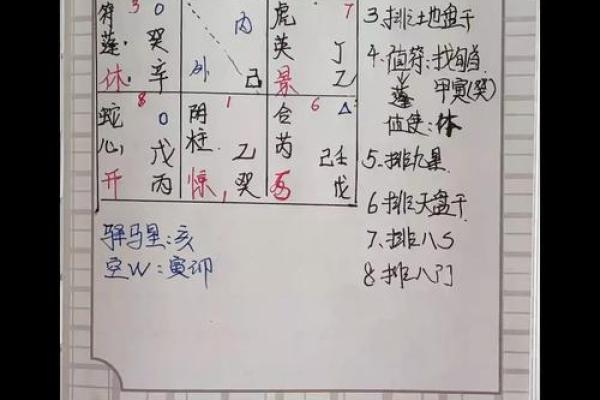 符 3 0
蓬 癸
休 辛
内
外 己
虎 7
英 丁
景 乙
蛇 8 0
心 戊
开 丙
阴 1
柱 乙
惊 癸
合 6 △
芮 己壬
戊
驿马星:亥
空W:寅卯
3.排地盘干
4.值符:找旬首
蓬 甲寅(癸)
值使:休
5.排九星
6 排天盘干
7、排八S
8 排八门